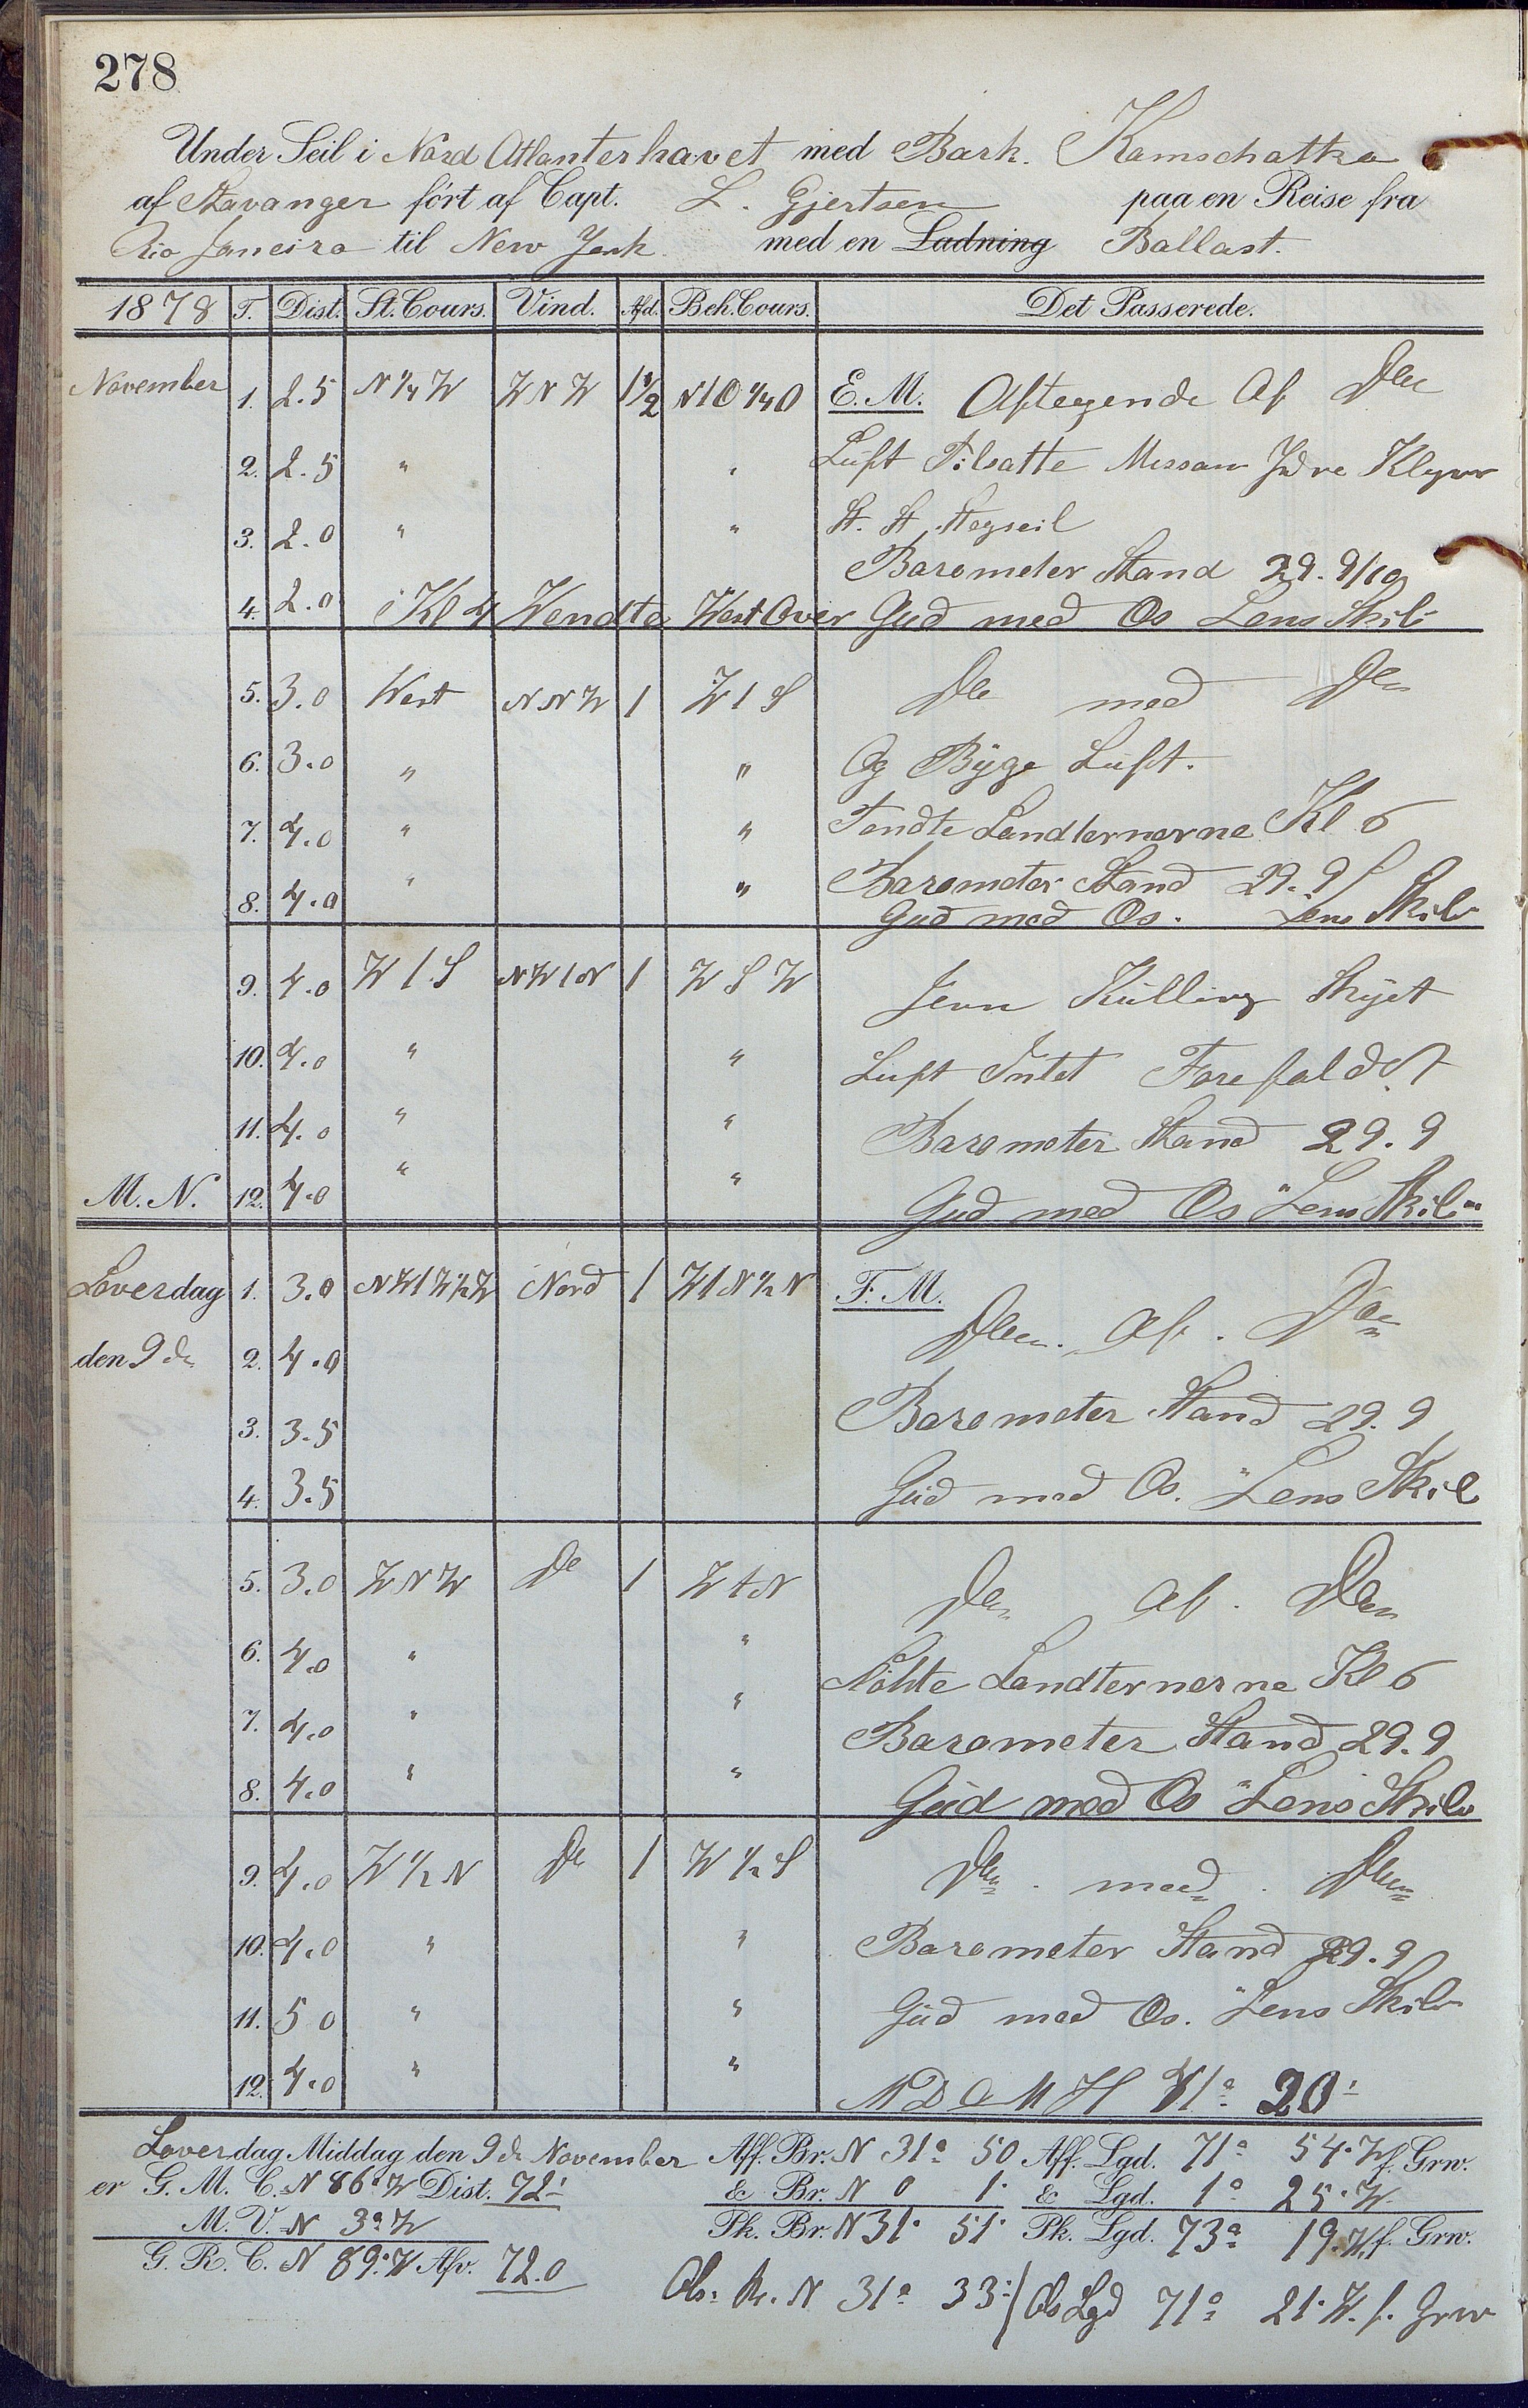 278
Under Seil i Nord Atlanterhavet med Bark. Kamschatka
af Stavanger ført af Capt. L. Gjertsen paa en Reise fra
Rio Janeiro til New York med en Ladning Ballast.
1878 T. Dist. St. Cours. Vind. Afd. Beh. Cours. Det Passerede.
November 1. 2.5 N 1/4 W WNW 1 1/2 N 1 O 1/4 O E. M. Aftegende Af Den
2. 2.5 " " Luft Tilsatte Messan Ydre Klyver
3. 2.0 " " St. St. Stegseil
Barometer Stand 29.9/10
4. 2.0 Kl 4 Vendte West Over Gud med Os Lens Skib
5. 3.0 West NNW 1 W 1 S De med Den
6. 3.0 " " Og Byge Luft.
7. 4.0 " " Tendte Landternerne Kl 6
8. 4.0 " " Barometer Stand 29.9
Gud med Os. Lens Skib
9. 4.0 W 1 S NW 1 N 1 W S W Jevn Kulling Skyet
10. 4.0 " " Luft Intet Forefaldet
11. 4.0 " " Barometer Stand 29.9
M. N. 12. 4.0 " " Gud med Os "Lens Skib"
Loverdag 1. 3.0 NW 1 W 1/2 W Nord 1 W 1 N 1/2 N F. M.
Den. Af. Den
den 9de 2. 4.0
3. 3.5 Barometer Stand 29.9
4. 3.5 Gud med Os. "Lens Skib
5. 3.0 WNW De 1 W 1 N Den af. Den
6. 4.0 " " Slökte Landternerne Kl 6
7. 4.0 " " Barometer Stand 29.9
8. 4.0 " " Gud med Os "Lens Skib
9. 4.0 W 1/2 N De 1 W 1/2 S Den. med. Den
10. 4.0 " " Barometer Stand 29.9
11. 5 0 " " Gud med Os. "Lens Skib
12. 4.0 " " 20
Loverdag Middag den 9de November Aff. Br. N 31° 50 Aff. Lgd. 71° 54' W f. Grw.
er G. M. C. N 86° W Dist. 72' & Br. N 0 1' & Lgd. 1° 25' W
M. V. N 3° W Pk. Br. N 31° 51' Pk. Lgd. 73° 19' W f. Grw.
G. R. C. N 89° W Afv. 72.0
Obs. Br. N 31° 33' Obs Lgd 71° 21' W. f. Grw